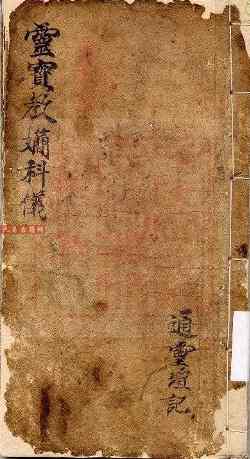 靈寶教科儀
通靈壇記